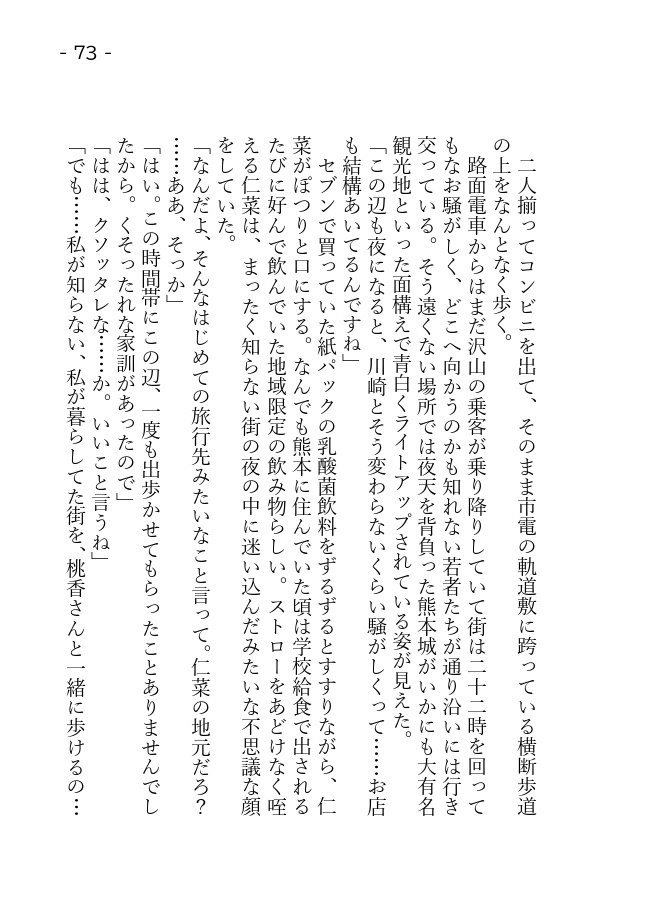 - 73 -
　二人揃ってコンビニを出て、そのまま市電の軌道敷に跨っている横断歩道
の上をなんとなく歩く。
　路面電車からはまだ沢山の乗客が乗り降りしていて街は二十二時を回って
もなお騒がしく、どこへ向かうのかも知れない若者たちが通り沿いには行き
交っている。そう遠くない場所では夜天を背負った熊本城がいかにも大有名
観光地といった面構えで青白くライトアップされている姿が見えた。
「この辺も夜になると、川崎とそう変わらないくらい騒がしくって……お店
も結構あいてるんですね」
　セブンで買っていた紙パックの乳酸菌飲料をずるずるとすすりながら、仁
菜がぽつりと口にする。なんでも熊本に住んでいた頃は学校給食で出される
たびに好んで飲んでいた地域限定の飲み物らしい。ストローをあどけなく咥
える仁菜は、まったく知らない街の夜の中に迷い込んだみたいな不思議な顔
をしていた。
「なんだよ、そんなはじめての旅行先みたいなこと言って。仁菜の地元だろ？
……ああ、そっか」
「はい。この時間帯にこの辺、一度も出歩かせてもらったことありませんでし
たから。くそったれな家訓があったので」
「はは、クソッタレな……か。いいこと言うね」
「でも……私が知らない、私が暮らしてた街を、桃香さんと一緒に歩けるの…